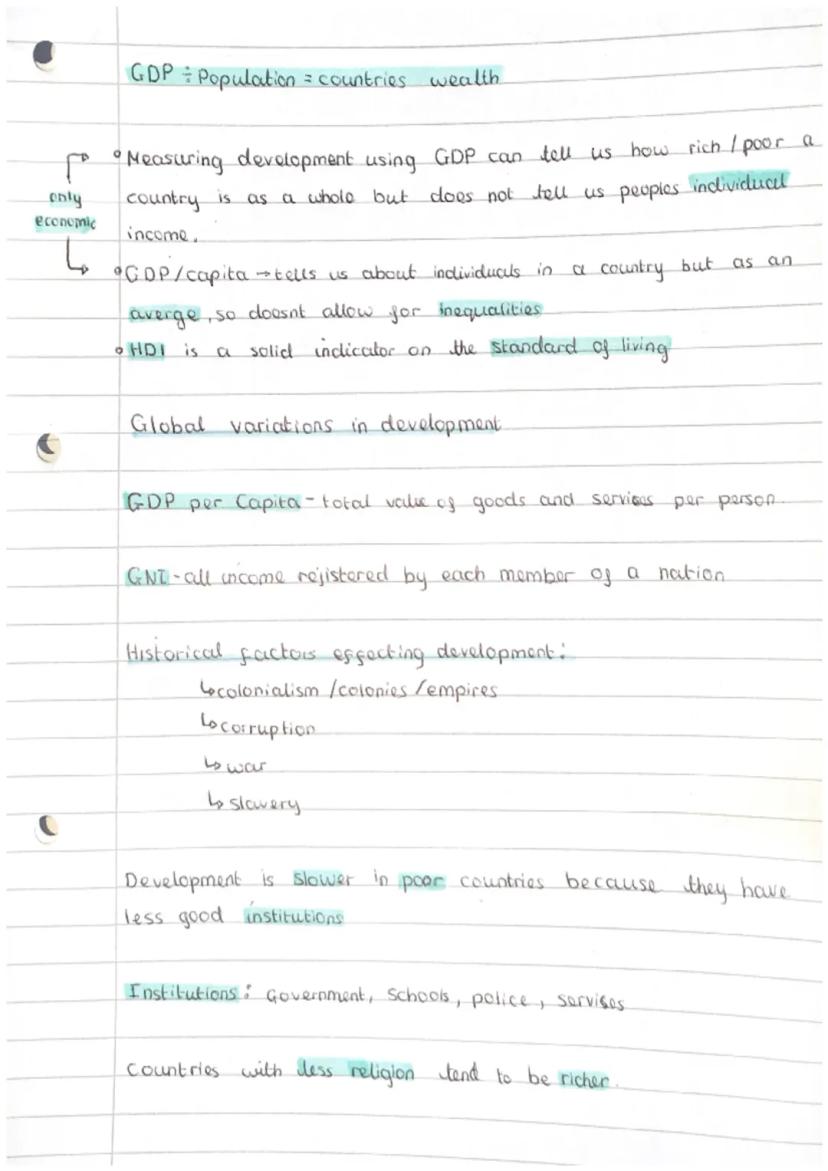 GDP ÷ Population = countries wealth
°Measuring development using GDP can tell us how rich / poor a
country is as a whole but does not tell us peoples individual
income.
only
economic
°GDP/capita → tells us about individuals in a country but as an
averge, so doesnt allow for inequalities
° HDI is a solid indicator on the standard of living
Global variations in development
GDP per Capita - total value of goods and servises per person.
GNI - all income rejistered by each member of a nation
Historical factors effecting development:
↳ colonialism / colonies / empires
↳ corruption
↳ war
↳ slavery
Development is slower in poor countries because they have
less good institutions
Institutions: Government, Schools, police, servises
Countries with less religion tend to be richer.